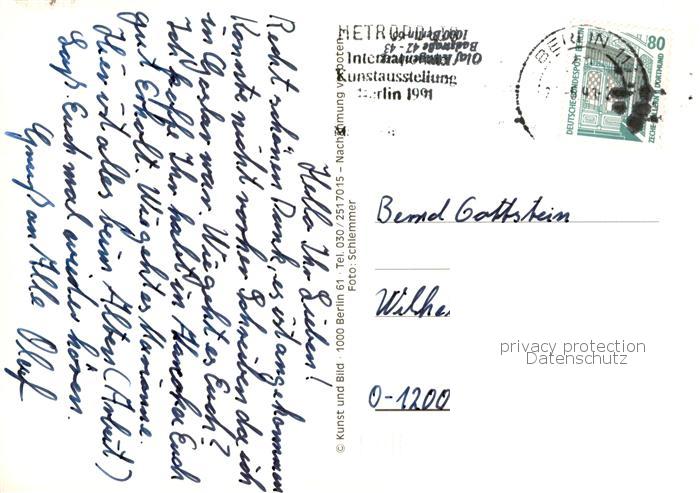 Hallo Ihr Lieben!
Recht schönen Dank, es ist angekommen
Konnte nicht vorher Schreiben da ich
in Goslar war. Wie geht es Euch?
Ich hoffe Ihr habt in Euch
gut Erholt. Wie geht es Marianne.
Hier ist alles beim Alten (Arbeit)
Laßt Euch mal wieder hören.
Gruß an Alle Olaf
© Kunst und Bild · 1000 Berlin 61 · Tel. 030 / 2517015 – Nachahmung verboten
Foto: Schlemmer
METROPOLIS
Internationale
Kunstausstellung
Berlin 1991
Olaf
Badstraße 42-43
1000 Berlin 65
BERLIN
80
DEUTSCHE BUNDESPOST BERLIN
ZECHE ZOLLERN II DORTMUND
Bernd Gottstein
Wilhe
O-1200
privacy protection
Datenschutz